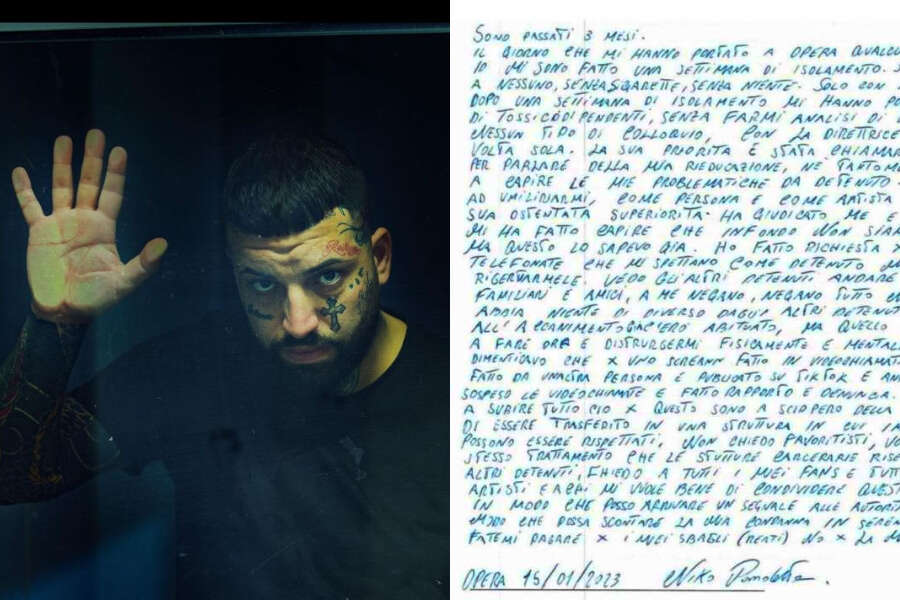 SONO PASSATI 3 MESI.
IL GIORNO CHE MI HANNO PORTATO A OPERA
IO MI SONO FATTO UNA SETTIMANA DI ISOLAMENTO.
A NESSUNO, SENZA SIGARETTE, SENZA NIENTE. SOLO CON
DOPO UNA SETTIMANA DI ISOLAMENTO MI HANNO
DI TOSSICODIPENDENTI, SENZA FARMI ANALISI DI
NESSUN TIPO DI COLLOQUIO, CON LA DIRETTRICE
VOLTA SOLA. LA SUA PRIORITA È STATA
PER PARLARE DELLA MIA RIEDUCAZIONE, NE
A CAPIRE LE MIE PROBLEMATICHE DA DETENUTO
AD UMILIARMI, COME PERSONA E COME ARTISTA
SUA OSTENTATA SUPERIORITA. HA GIUDICATO ME E
MI HA FATTO CAPIRE CHE INFONDO NON
MA QUESTO LO SAPEVO GIA. HO FATTO RICHIESTA X
TELEFONATE CHE MI SPETTANO COME DETENUTO
VEDO GLI ALTRI DETENUTI ANDARE
FAMILIARI E AMICI, A ME NEGANO, NEGANO TUTTO
ABBIA NIENTE DI DIVERSO DAGLI ALTRI
ALL'ACCANIMENTO GIÀ ERO ABITUATO, MA QUELLO
A FARE ORA E DISTRURGERMI FISICAMENTE E
DIMENTICAVO CHE X UNO SCREANN FATTO IN
FATTO DA UNALTRA PERSONA E PUBLICATO SU TIKTOK E
SOSPESO LE VIDEOCHIAMATE E FATTO RAPPORTO E DENUNCIA.
A SUBIRE TUTTO CIO X QUESTO SONO A SCIOPERO DELLA
DI ESSERE TRASFEDITO IN UNA STRUTTURA IN CUI
POSSONO ESSERE RISPETTATI, NON CHIEDO FAVORITISTI,
STESSO TRATTAMENTO CHE LE STUTTURE CARCERARIE
ALTRI DETENUTI, CHIEDO A TUTTI I MIEI FANS E
ARTISTI E A CHI MI VUOLE BENE DI CONDIVIDERE
IN MODO CHE POSSO ARRIVARE UN SEGNALE ALLE
MODO CHE POSSA SCONTARE LA MIA CONDANNA IN
FATEMI PAGARE X I MIEI SBAGLI (REATI) NO X LA
OPERA 15/01/2023 Niko Pandetta.